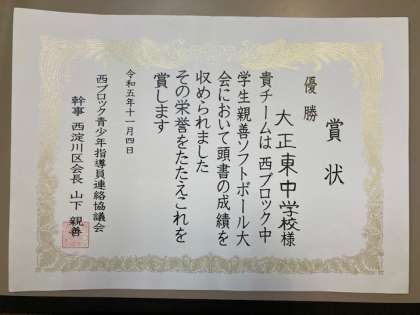 賞状
優勝
大正東中学校様
貴チームは西ブロック中
学生親善ソフトボール大
会において頭書の成績を
収められました
その栄誉をたたえこれを
賞します
令和五年十一月四日
西ブロック青少年指導員連絡協議会
幹事 西淀川区会長 山下 親善